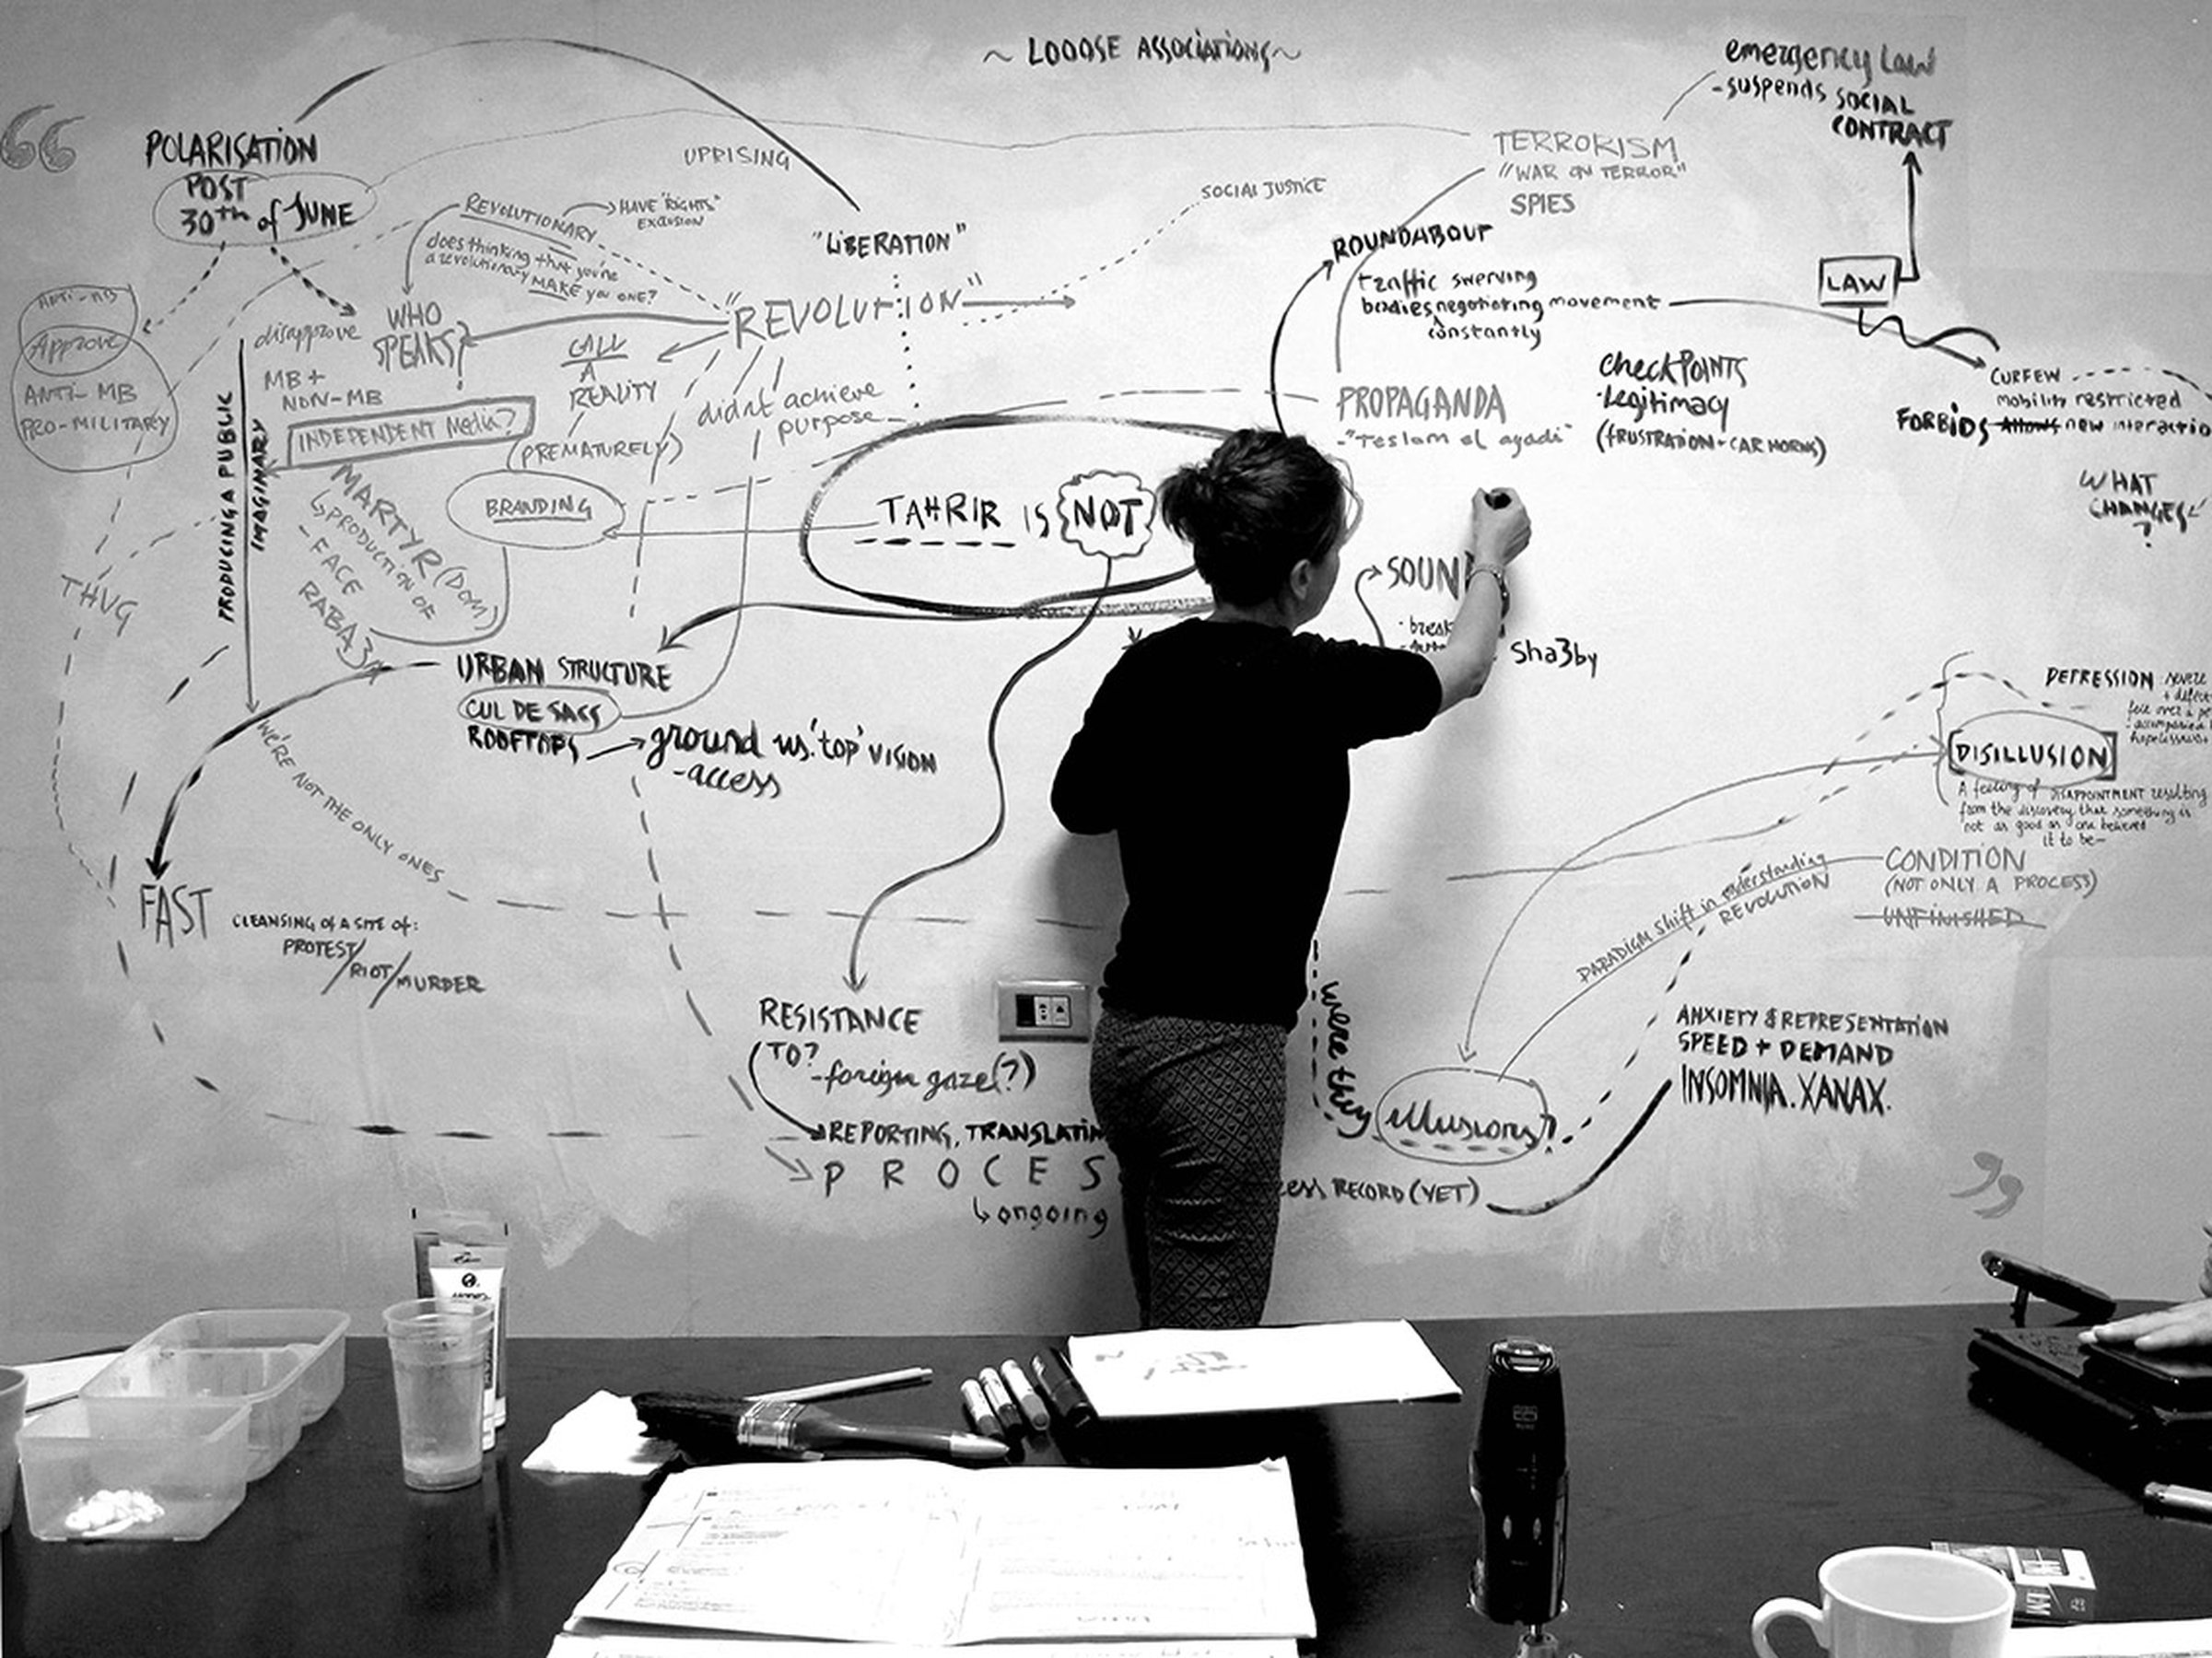 ~ LOOOSE ASSOCIATIONS ~
emergency Law
- suspends SOCIAL
CONTRACT
POLARISATION
POST
30th of JUNE
UPRISING
REVOLUTIONARY
HAVE "RIGHTS"
EXCLUSION
does thinking that you're
a revolutionary MAKE you ONE?
"LIBERATION"
"REVOLUTION"
SOCIAL JUSTICE
TERRORISM
"WAR ON TERROR"
SPIES
ROUNDABOUT
traffic swerving
bodies negotiating movement
constantly
LAW
ANTI-MB
Approve
ANTI-MB
PRO-MILITARY
disapprove
MB +
NON-MB
WHO
SPEAKS?
CALL
A
REALITY
(PREMATURELY)
didn't achieve
purpose
INDEPENDENT Media?
PRODUCING A PUBLIC
IMAGINARY
MARTYR (DOM)
PRODUCTION OF
- FACE
RABA3A
BRANDING
TAHRIR IS NOT
PROPAGANDA
- "Teslam el ayadi"
checkPOINTS
- Legitimacy
(FRUSTRATION - CAR HORNS)
CURFEW
mobility restricted
FORBIDS Allows new interactio
WHAT
CHANGES
?
SOUN
Sha3by
THUG
URBAN STRUCTURE
CUL DE SACS
ROOFTOPS
ground vs. 'top' VISION
- access
WE'RE NOT THE ONLY ONES
FAST
CLEANSING OF A SITE OF:
PROTEST/
RIOT/MURDER
DEPRESSION
DISILLUSION
A feeling of DISAPPOINTMENT resulting
from the discovery that something is
not as good as one believed
it to be-
CONDITION
(NOT ONLY A PROCESS)
UNFINISHED
PARADIGM Shift in understanding
REVOLUTION
RESISTANCE
TO?
- foreign gaze(?)
REPORTING, TRANSLATIN
PROCES
ongoing
were they
illusions?
RECORD (YET)
ANXIETY & REPRESENTATION
SPEED + DEMAND
INSOMNIA. XANAX.
LM